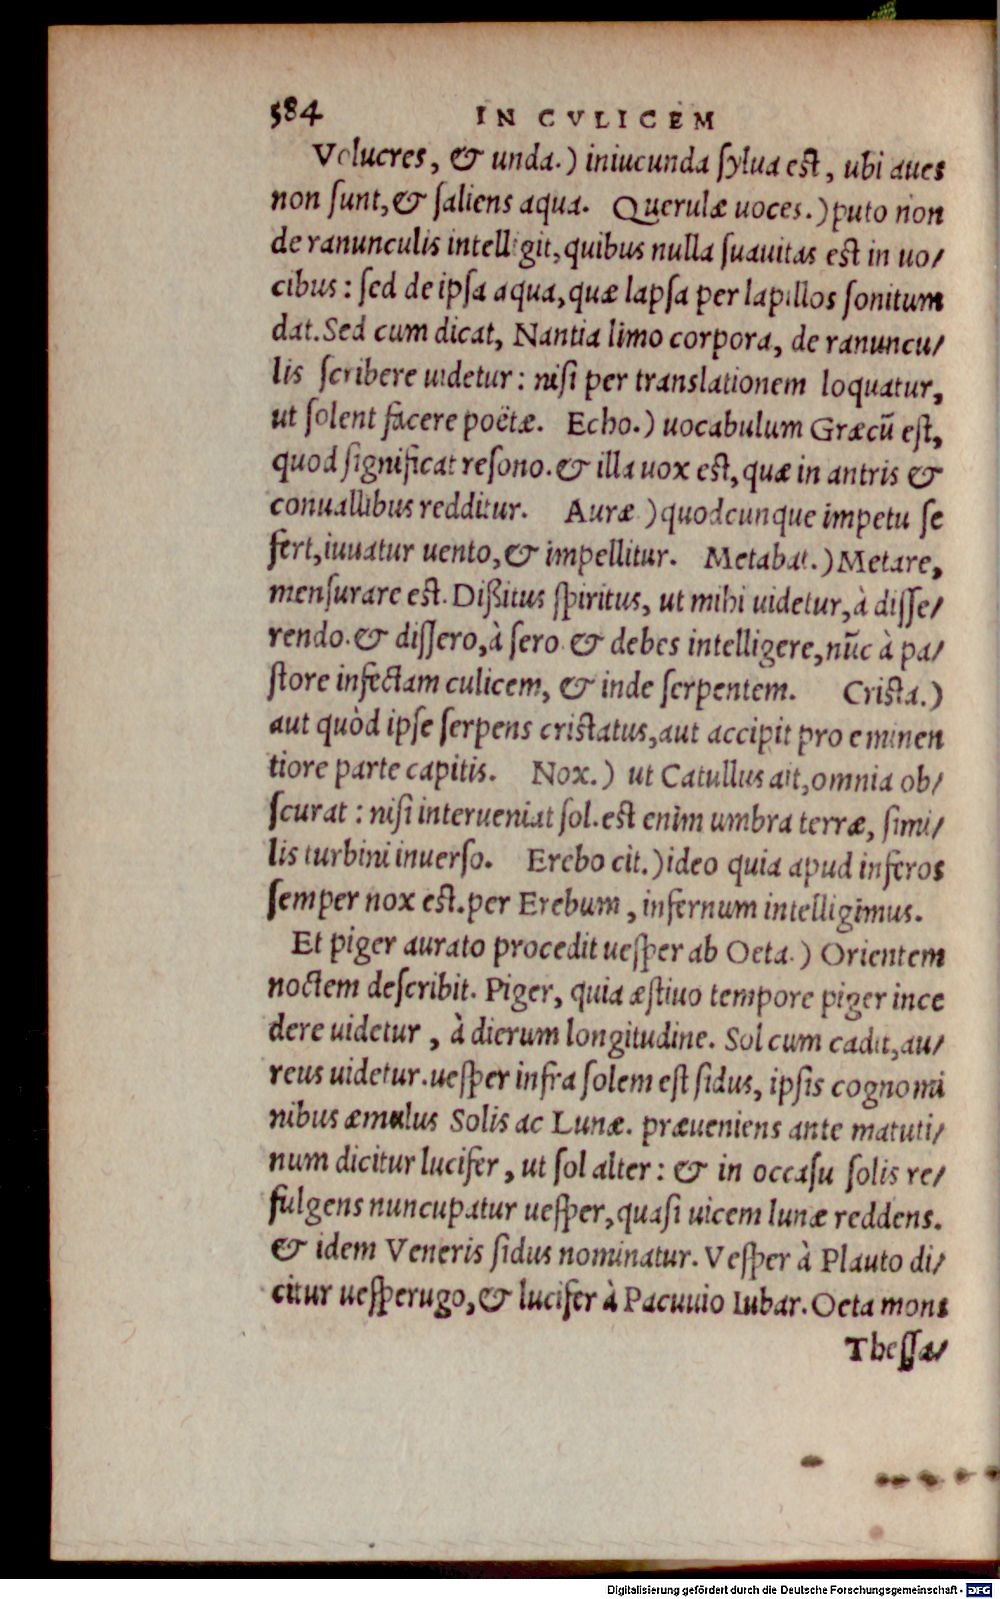 584 IN CVLICEM
Volucres, & unda.) iniucunda ſylua est, ubi aues
non ſunt, & ſaliens aqua. Querulæ uoces.) puto non
de ranunculis intelligit, quibus nulla ſuauitas est in uo/
cibus: ſed de ipſa aqua, quæ lapſa per lapillos ſonitum
dat. Sed cum dicat, Nantia limo corpora, de ranuncu/
lis ſcribere uidetur: niſi per translationem loquatur,
ut ſolent facere poëtæ. Echo.) uocabulum Græcū eſt,
quod ſignificat reſono. & illa uox est, quæ in antris &
conuallibus redditur. Auræ) quodcunque impetu ſe
fert, iuuatur uento, & impellitur. Metabat.) Metare,
menſurare est. Dißitus ſpiritus, ut mihi uidetur, à diſſe/
rendo. & diſſero, à ſero & debes intelligere, nūc à pa/
ſtore infectam culicem, & inde ſerpentem. Crista.)
aut quòd ipſe ſerpens cristatus, aut accipit pro eminen
tiore parte capitis. Nox.) ut Catullus ait, omnia ob/
ſcurat: niſi interueniat ſol. est enim umbra terræ, ſimi/
lis turbini inuerſo. Erebo cit.) ideo quia apud inferos
ſemper nox est. per Erebum, infernum intelligimus.
Et piger aurato procedit ueſper ab Oeta.) Orientem
noctem deſcribit. Piger, quia æſtiuo tempore piger ince
dere uidetur, à dierum longitudine. Sol cum cadit, au/
reus uidetur. ueſper infra ſolem eſt ſidus, ipſis cognomi
nibus æmulus Solis ac Lunæ. præueniens ante matuti/
num dicitur lucifer, ut ſol alter: & in occaſu ſolis re/
fulgens nuncupatur ueſper, quaſi uicem lunæ reddens.
& idem Veneris ſidus nominatur. Veſper à Plauto di/
citur ueſperugo, & lucifer à Pacuuio Iubar. Oeta mons
Theſſa/
Digitalisierung gefördert durch die Deutsche Forschungsgemeinschaft - DFG